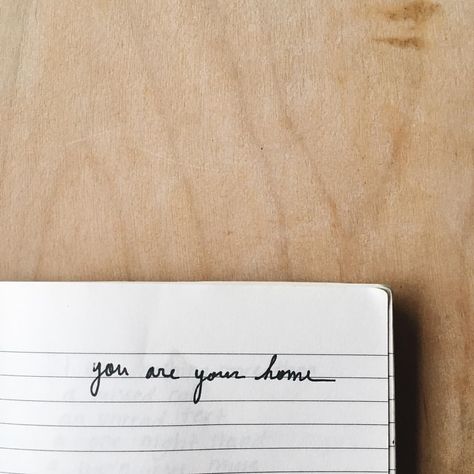 you are your home